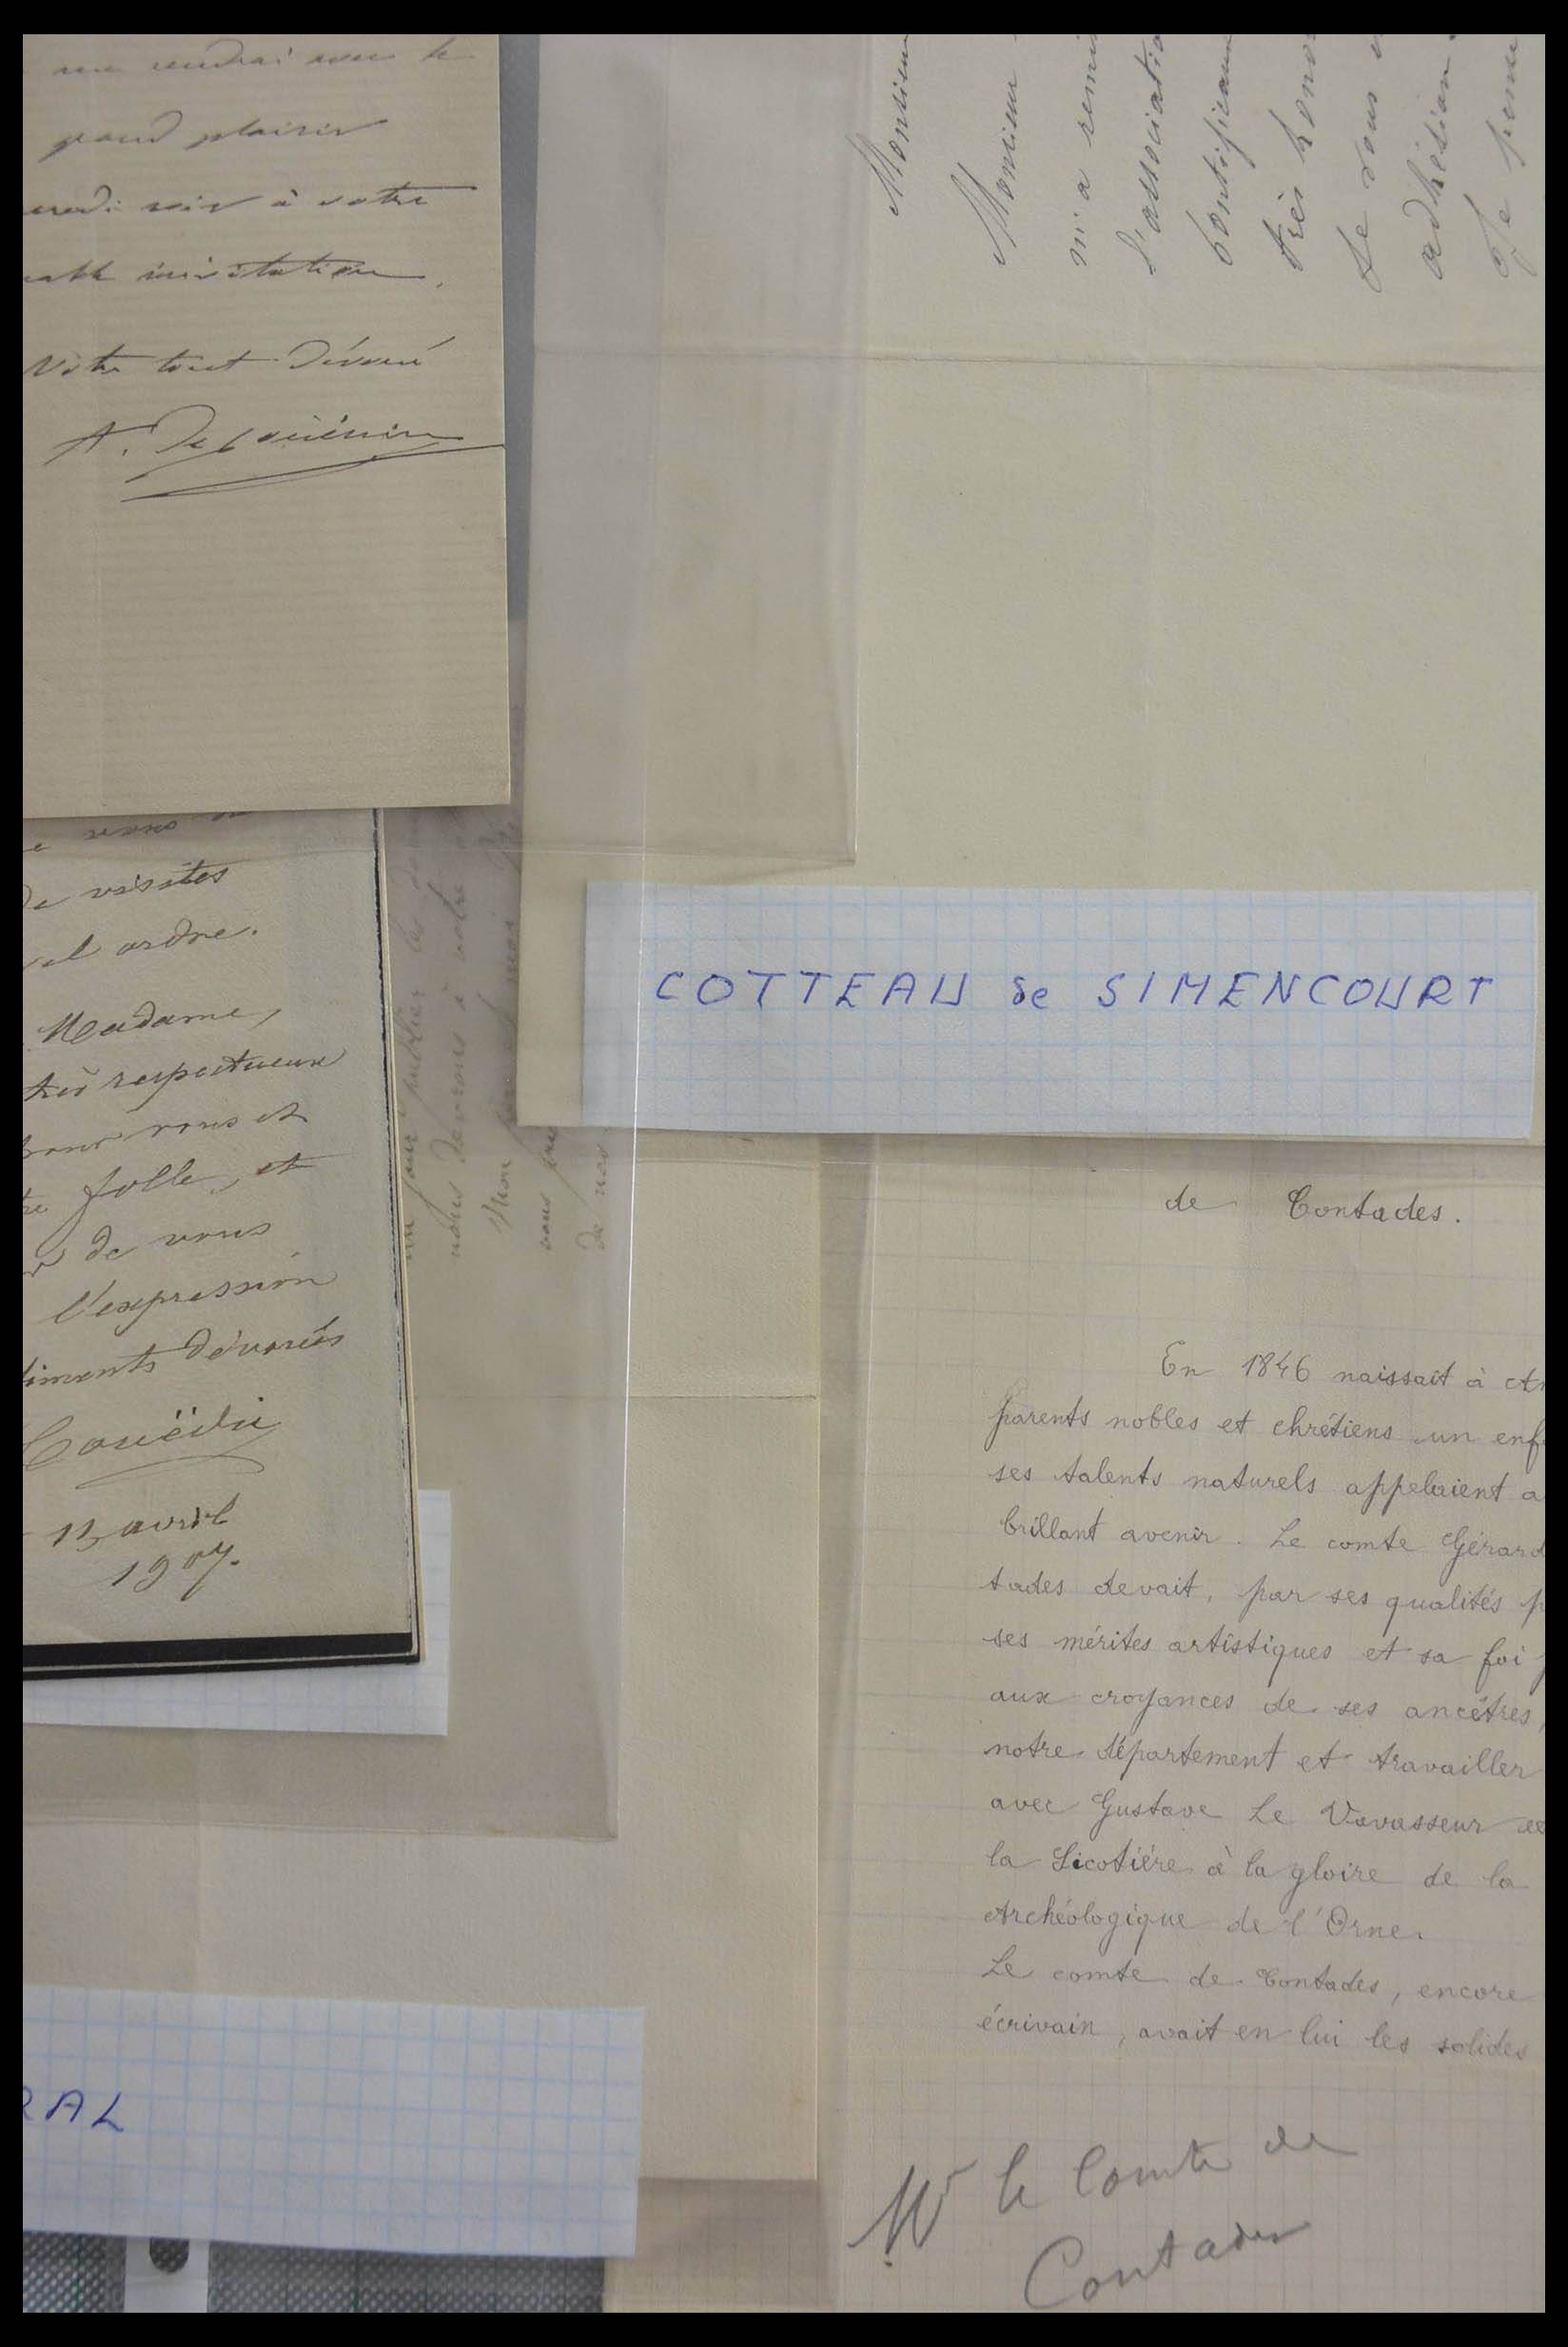 me rendrai avec le
grand plaisir
soir à votre
invitation.
Votre tout dévoué
Monsieur
Monsieur
m'a remis
l'association
Pontificaux
très hono
Je vous
adhésion
Je
de visites
ordre.
Madame,
respectueux
vous et
folle, et
de vous
l'expression
timents dévoués
Couëdic
13 avril
1907.
un jour publier les
nous devons à votre
Mon
vous
de nos
COTTEAU de SIMENCOURT
de Contades.
En 1846 naissait à
parents nobles et chrétiens un enf
ses talents naturels appelaient a
brillant avenir. Le comte Gérard
tades devait, par ses qualités p
ses mérites artistiques et sa foi
aux croyances de ses ancêtres,
notre département et travailler
avec Gustave Le Vavasseur
la Sicotière à la gloire de la
Archéologique de l'Orne.
Le comte de Contades, encore
écrivain, avait en lui les solides
RAL
Mr le Comte de
Contades